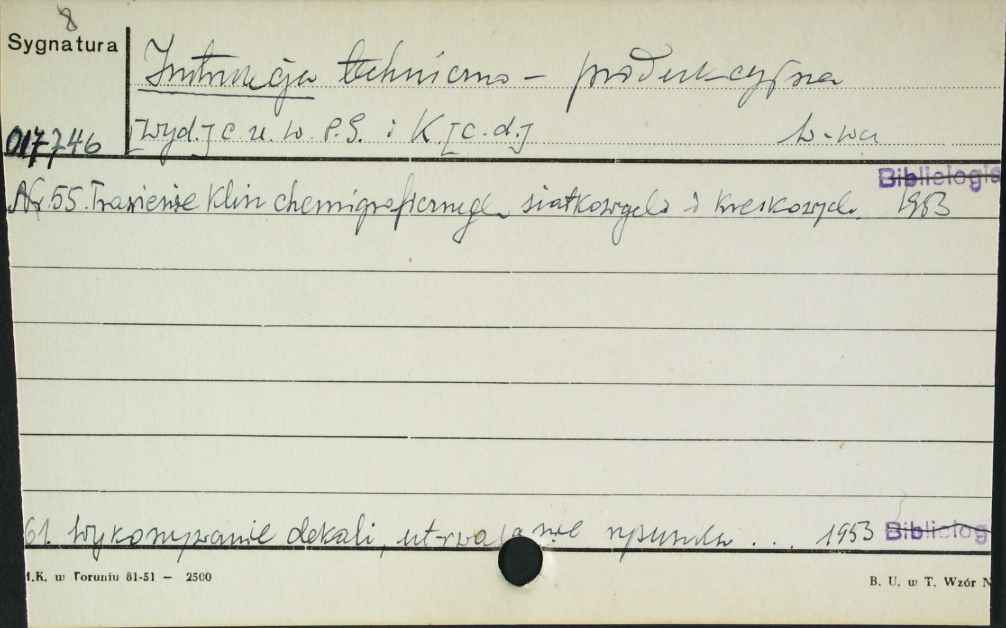 8
Sygnatura
Instrukcja techniczno - produkcyjna
017746
[Wyd.] C. U. W. P. G. i K [c. d.] W-wa
Bibliologia
Nr. 55. Trawienie klisz chemigraficznych siatkowych i kreskowych. 1953
61. Wykonywanie dekali, utrwalanie rysunku ... 1953 Bibliolog
.K. w Toruniu 81-51 — 2500
B. U. w T. Wzór N